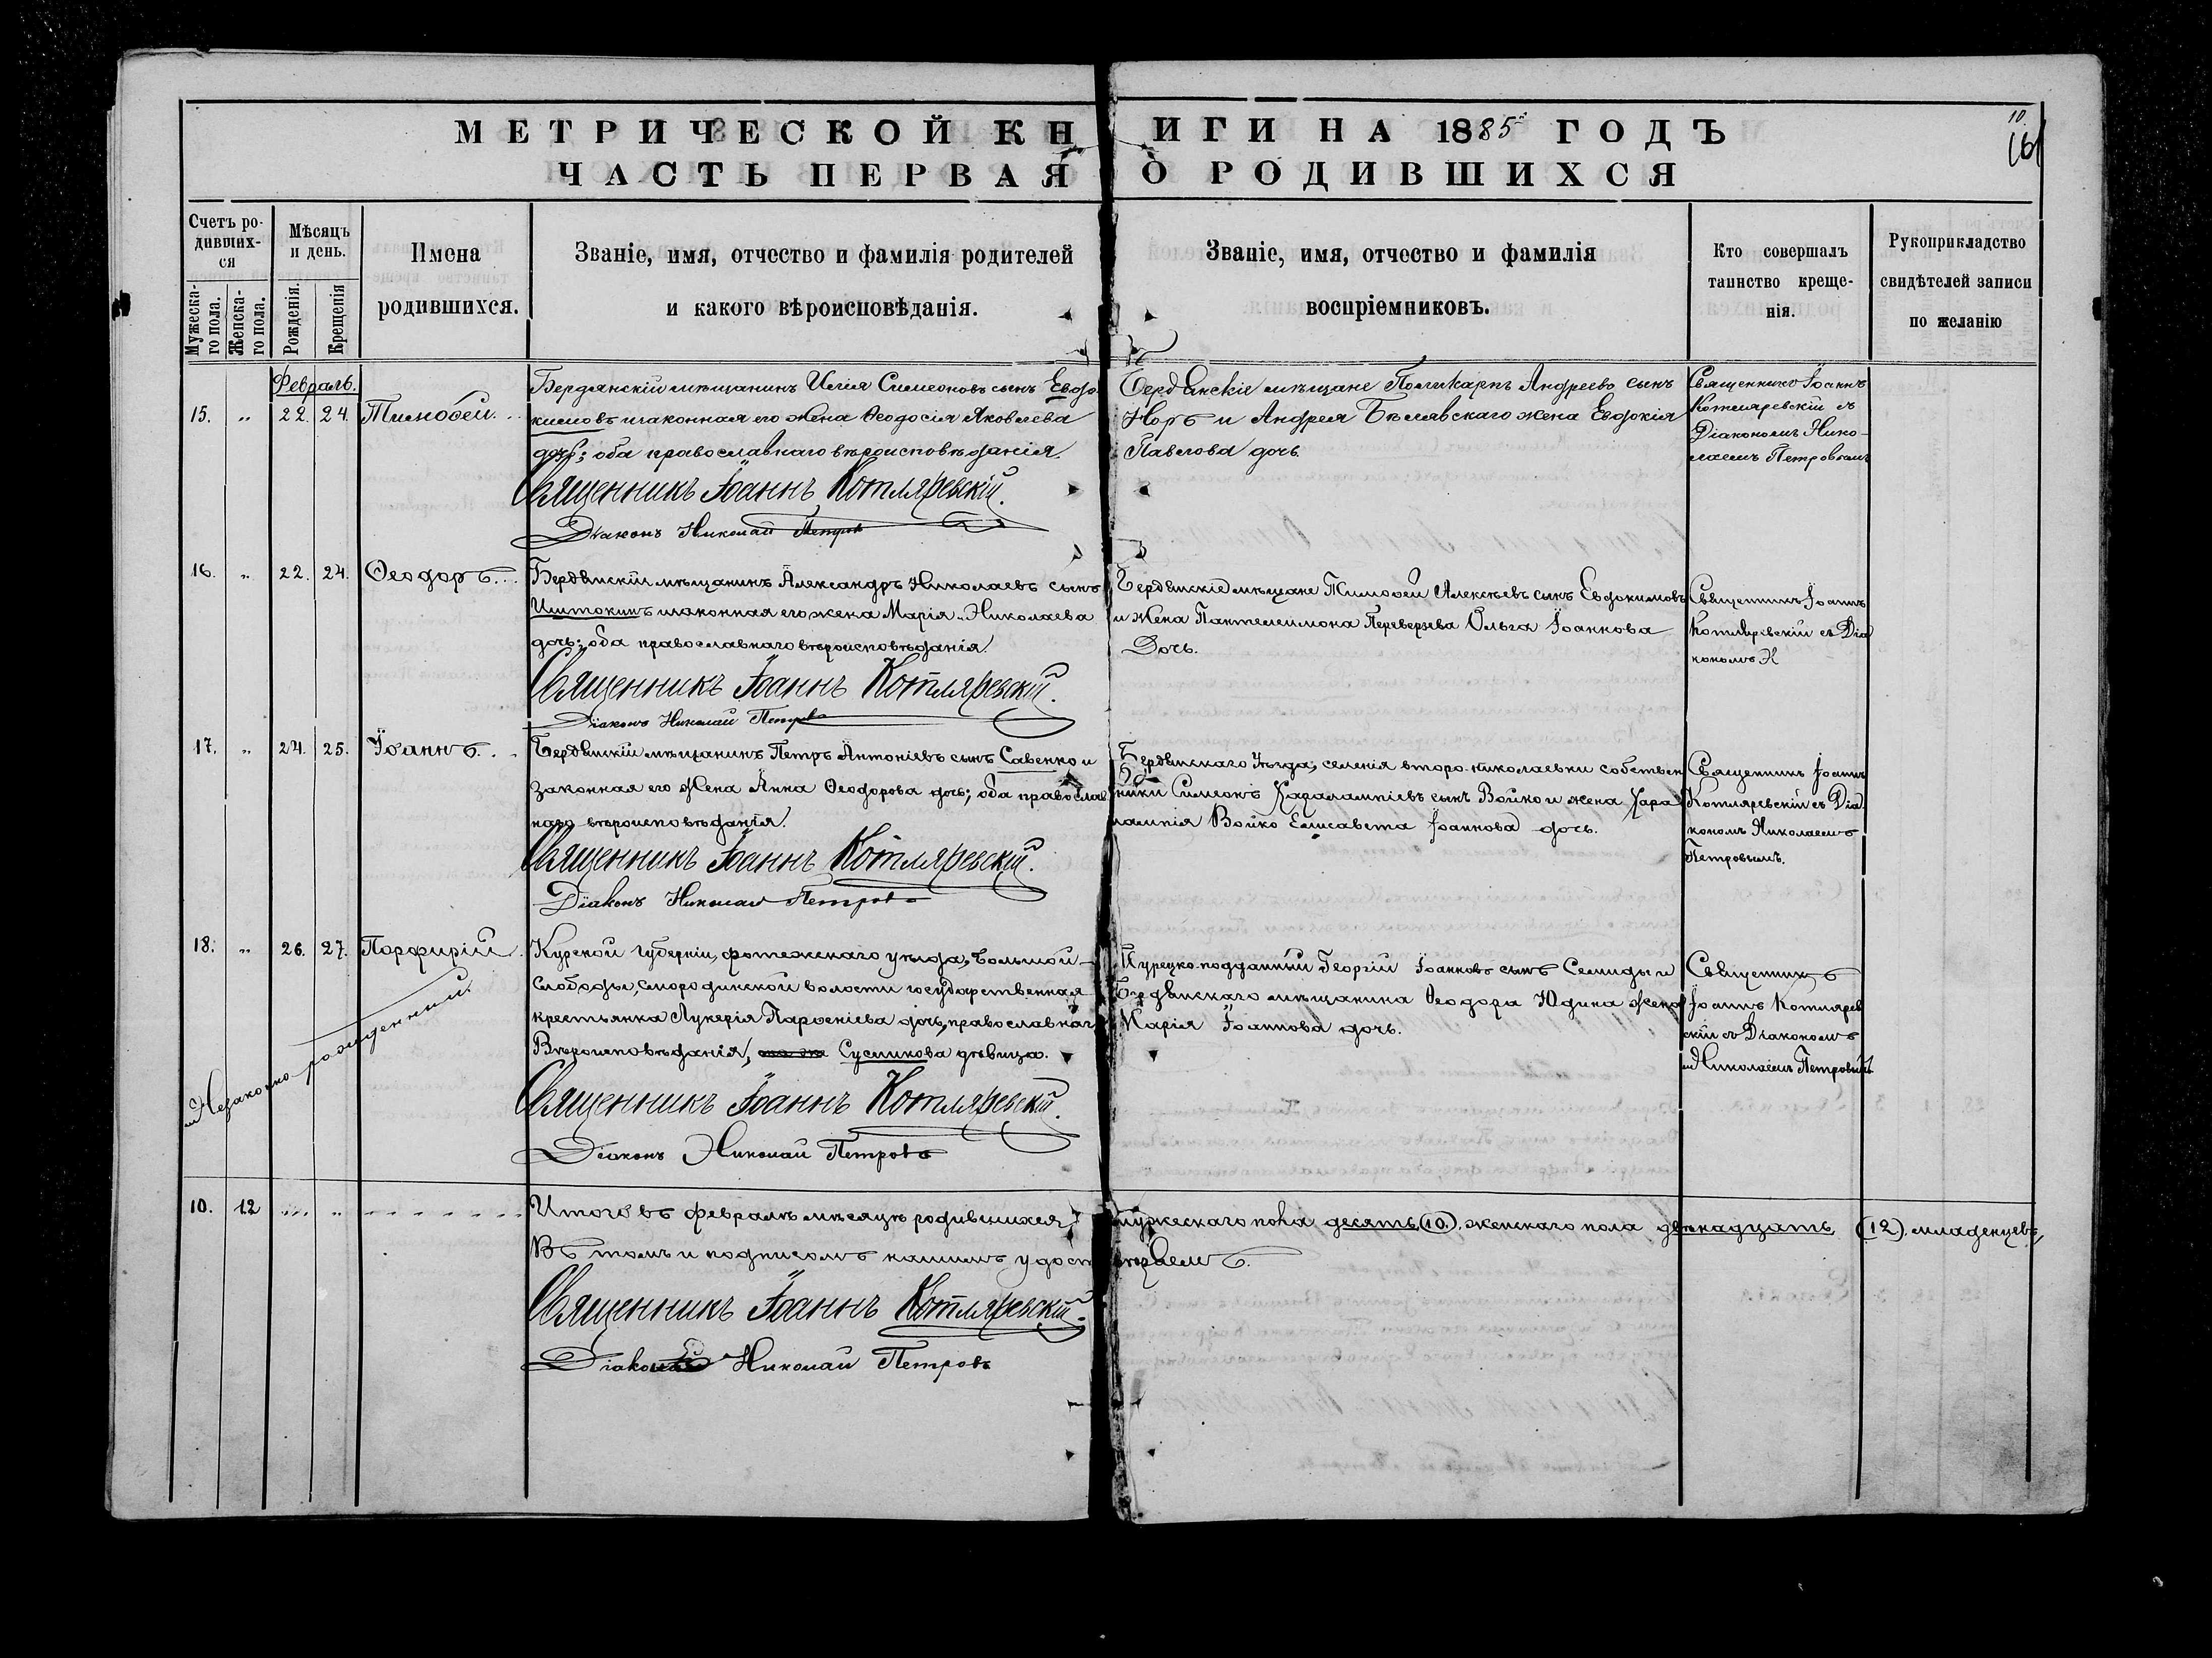 МЕТРИЧЕСКОЙ КНИГИ НА 1885 ГОДЪ
10.
ЧАСТЬ ПЕРВАЯ О РОДИВШИХСЯ
Счетъ родивших-
ся
Мужеска-
го пола.
Женска-
го пола.
Мѣсяцъ
и день.
Рожденія.
Крещенія
Имена
родившихся.
Званіе, имя, отчество и фамилія родителей
и какого вѣроисповѣданія.
Званіе, имя, отчество и фамилія
воспріемниковъ.
Кто совершалъ
таинство креще-
нія.
Рукоприкладство
свидѣтелей записи
по желанію
Февраль.
15. „ 22. 24. Тимоѳей.
Бердянскій мѣщанинъ Илія Симеоновъ сынъ Евдо-
кимовъ и законная его жена Ѳеодосія Яковлева
дочь; оба православнаго вѣроисповѣданія.
Священникъ Іоаннъ Котляревскій.
Діаконъ Николай Петровъ
Бердянскіе мѣщане Поликарпъ Андреевъ сынъ
Норъ и Андрея Бѣлявскаго жена Евдокія
Павлова дочь.
Священникъ Іоаннъ
Котляревскій съ
Діакономъ Нико-
лаемъ Петровымъ
16. „ 22. 24. Ѳеодоръ.
Бердянскій мѣщанинъ Александръ Николаевъ сынъ
Ишутокинъ и законная его жена Марія Николаева
дочь; оба православнаго вѣроисповѣданія.
Священникъ Іоаннъ Котляревскій.
Діаконъ Николай Петровъ
Бердянскіе мѣщане Тимоѳей Алексѣевъ сынъ Евдокимовъ
и жена Пантелеймона Переверзева Ольга Іоаннова
Дочь.
Священникъ Іоаннъ
Котляревскій съ Діа
кономъ Н
17. „ 24. 25. Іоаннъ.
Бердянскій мѣщанинъ Петръ Антоніевъ сынъ Савенко и
законная его жена Анна Ѳеодорова дочь; оба православ
наго вѣроисповѣданія.
Священникъ Іоаннъ Котляревскій.
Діаконъ Николай Петровъ
Бердянскаго Уѣзда, селенія второ-николаевки собствен
ники Симеонъ Харалампіевъ сынъ Бойко и жена Хара
лампія Бойко Елисавета Іоаннова дочь.
Священникъ Іоаннъ
Котляревскій съ Діа
кономъ Николаемъ
Петровымъ.
18. „ 26. 27. Порфирій
Незаконно рожденный.
Курской губерніи, фатежскаго уѣзда, Большой
Слободы, Смородинской волости государственная
крестьянка Лукерія Парѳеніева дочь, православнаго
Вѣроисповѣданія, Сусликова дѣвица.
Священникъ Іоаннъ Котляревскій.
Діаконъ Николай Петровъ
Турецко-подданный Георгій Іоанновъ сынъ Селиды и
Бердянскаго мѣщанина Ѳеодора Юдина жена
Марія Іоаннова дочь.
Священникъ
Іоаннъ Котлярев
скій съ Діакономъ
Николаемъ Петровымъ
10. 12 Итого въ февралѣ мѣсяцѣ родившихся мужескаго пола десять (10). женскаго пола двѣнадцать (12). младенцевъ,
Въ томъ и подписомъ нашимъ удостовѣряемъ.
Священникъ Іоаннъ Котляревскій.
Діаконъ Николай Петровъ